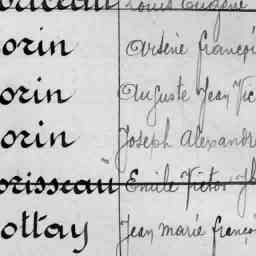 Louis Eugène
orin Arsène françoi
orin Auguste Jean Vic
orin Joseph Alexandre
orisseau Emile Victor
ottay Jean marie franço